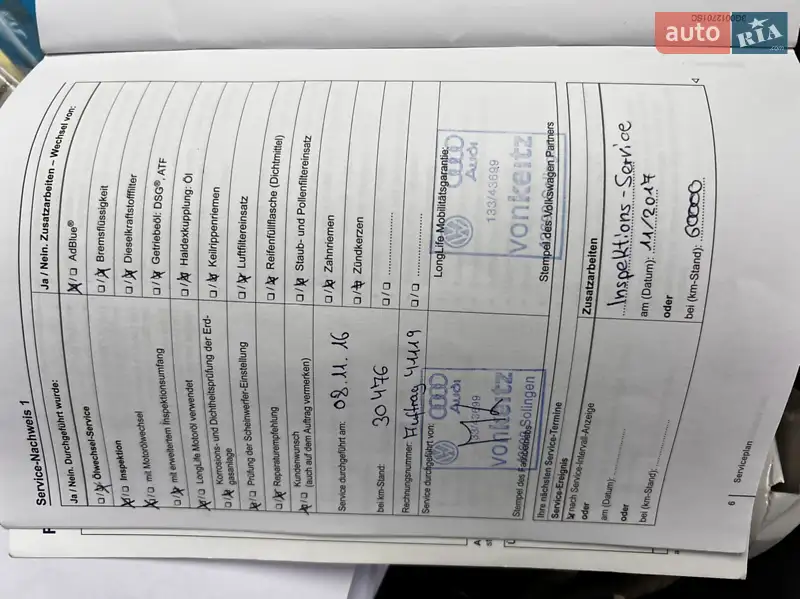 auto RIA.com
Service-Nachweis 1
Ja / Nein. Durchgeführt wurde:
Ölwechsel-Service
Inspektion
mit Motorölwechsel
mit erweitertem Inspektionsumfang
LongLife Motoröl verwendet
Korrosions- und Dichtheitsprüfung der Erd-
gasanlage
Prüfung der Scheinwerfer-Einstellung
Reparaturempfehlung
Kundenwunsch
(auch auf dem Auftrag vermerken)
Service durchgeführt am: 08.11.16
bei km-Stand: 30476
Rechnungsnummer: Auftrag 41119
Service durchgeführt von:
Audi
133/43699
vonkeitz
Solingen
Stempel des Fachbetriebs
Ja / Nein. Zusatzarbeiten – Wechsel von:
AdBlue®
Bremsflüssigkeit
Dieselkraftstofffilter
Getriebeöl: DSG®, ATF
Haldexkupplung: Öl
Keilrippenriemen
Luftfiltereinsatz
Reifenfüllflasche (Dichtmittel)
Staub- und Pollenfiltereinsatz
Zahnriemen
Zündkerzen
LongLife Mobilitätsgarantie:
Audi
133/43699
vonkeitz
Stempel des Volkswagen Partners
Ihre nächsten Service-Termine
Service-Ereignis
nach Service-Intervall-Anzeige
oder
am (Datum):
oder
bei (km-Stand):
Zusatzarbeiten
Inspektions-Service
am (Datum): 11/2017
oder
bei (km-Stand): 60000
6 Serviceplan